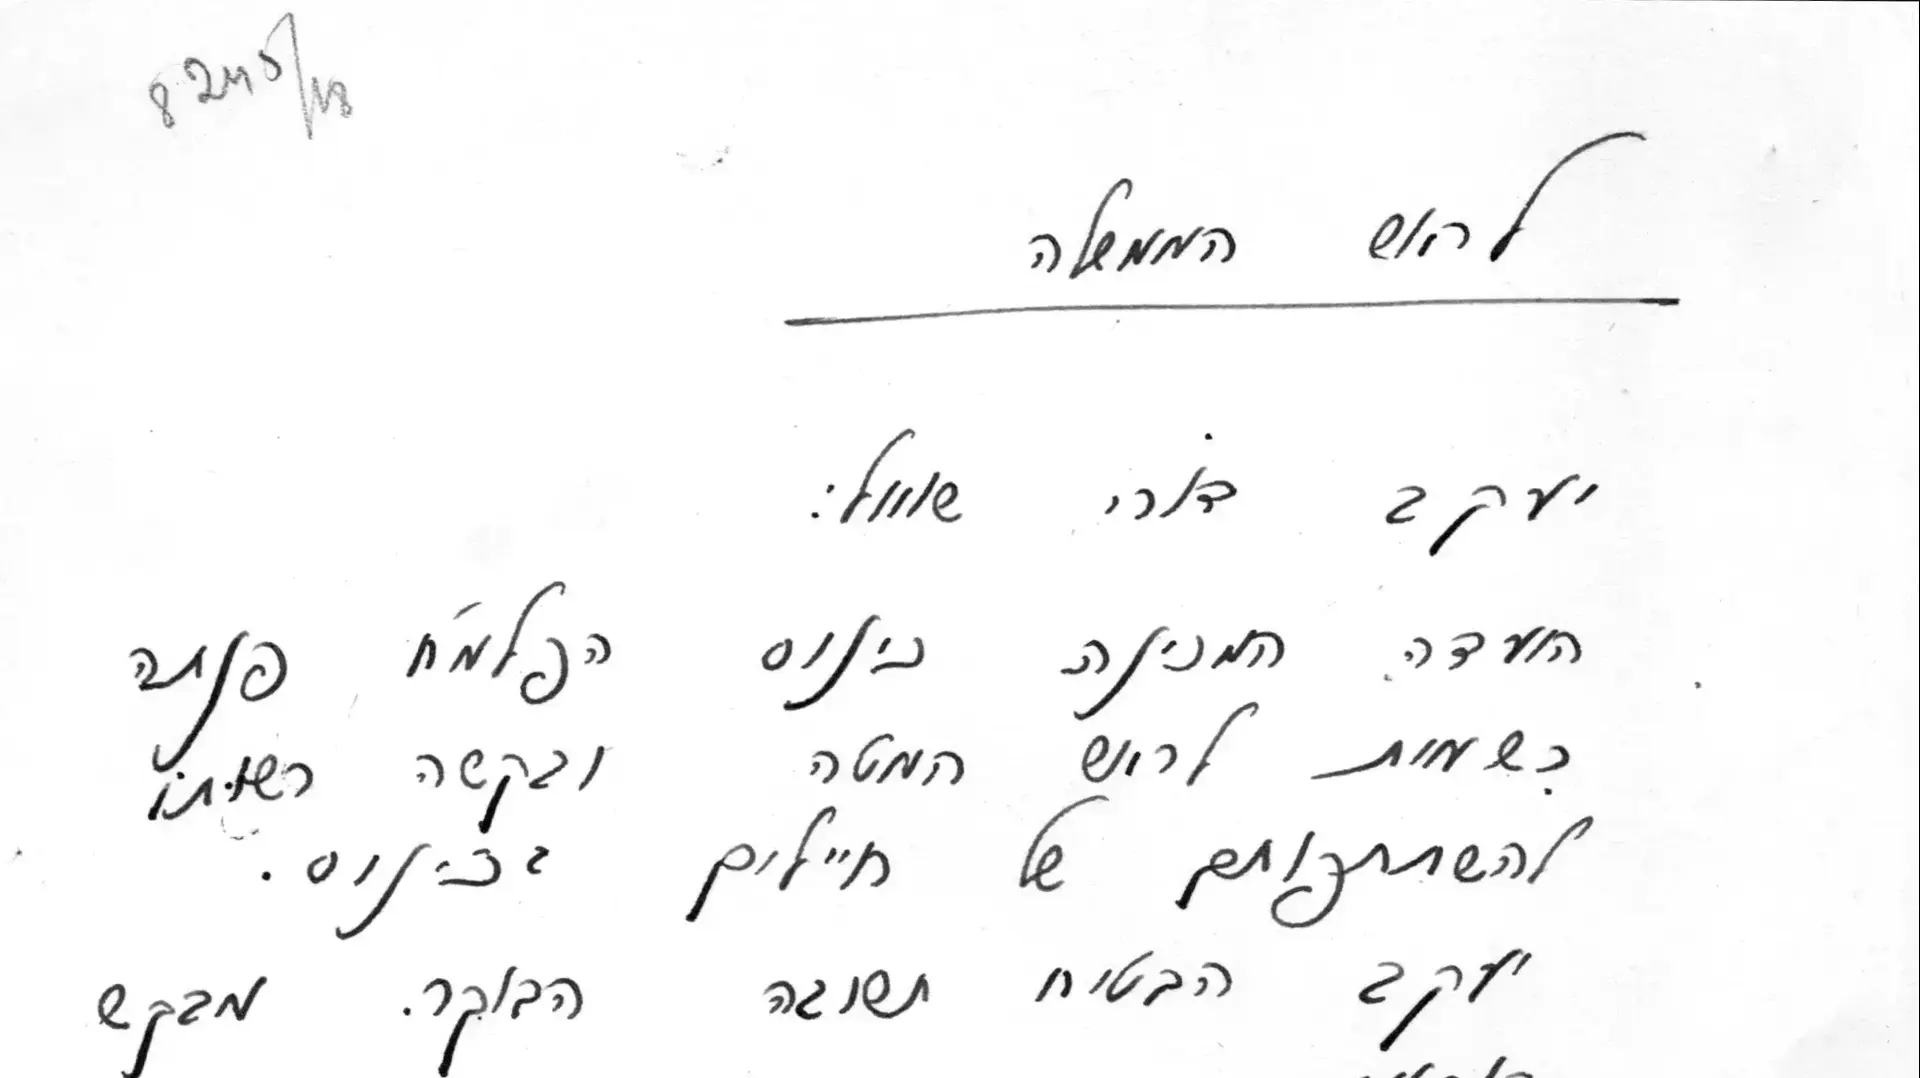 לראש הממשלה
יעקב דורי שואל:
הועדה המכינה כינוס הפלמ"ח פנתה
רשמית לראש המטה ובקשה רשותו
להשתתפותם של חיילים בכינוס.
יעקב הבטיח תשובה הבוקר. מבקש